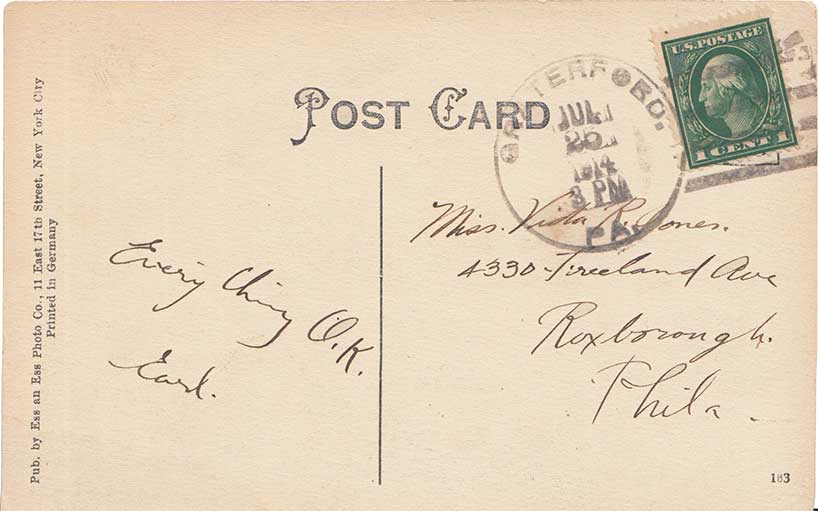 POST CARD
GRATERFORD.
JUL
25
1914
3 PM
PA.
U.S. POSTAGE
1 CENT 1
Miss. Vida R. Jones.
4330 Fireeland Ave
Roxborough.
Phila.
Every thing O.K.
Earl.
Pub. by Ess an Ess Photo Co., 11 East 17th Street, New York City
Printed in Germany
183